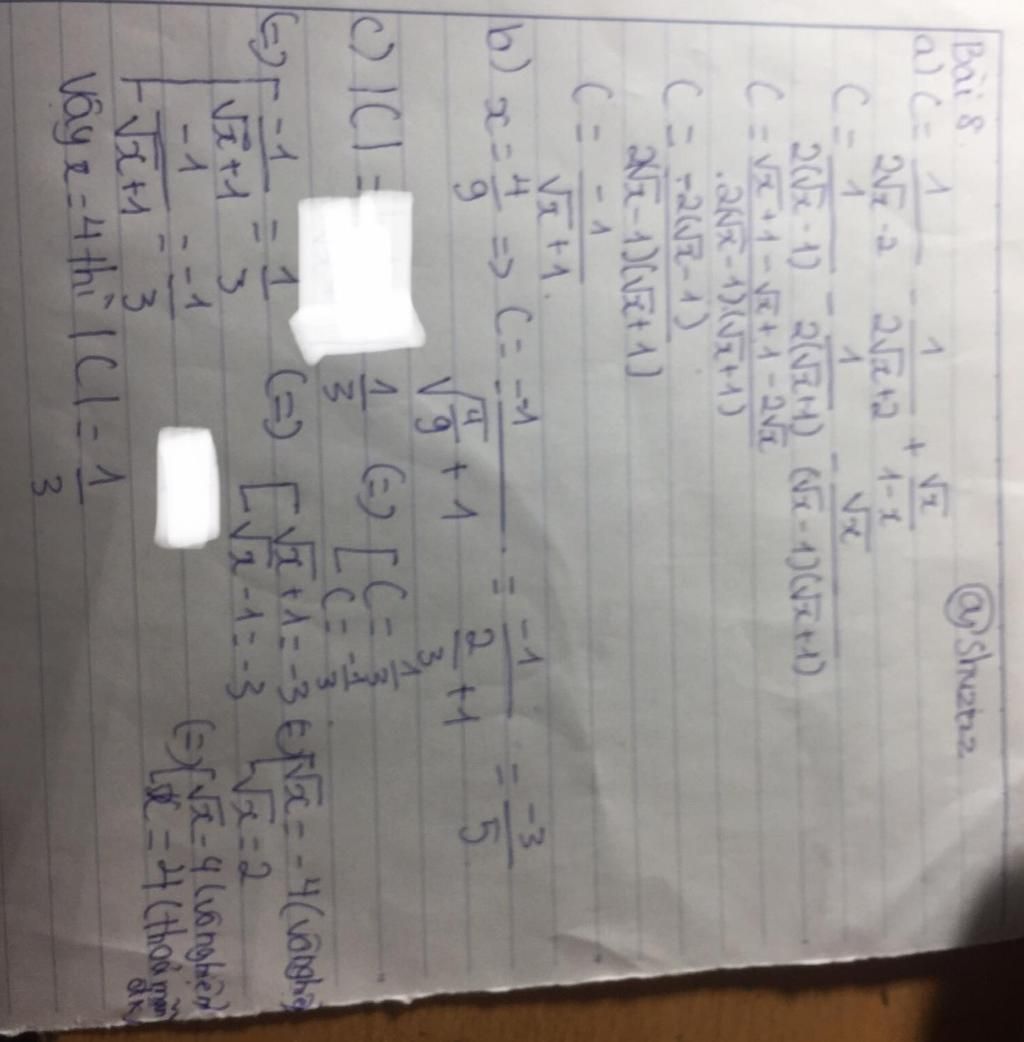 Bài 8. @Shuztzz
a) C = 1/(2√x - 2) - 1/(2√x + 2) + √x/(1 - x)
C = 1/(2(√x - 1)) - 1/(2(√x + 1)) - √x/((√x - 1)(√x + 1))
C = (√x + 1 - √x + 1 - 2√x)/(2(√x - 1)(√x + 1))
C = (-2(√x - 1))/(2(√x - 1)(√x + 1))
C = -1/(√x + 1).
b) x = 4/9 => C = -1/(√(4/9) + 1) = -1/(2/3 + 1) = -3/5
c) |C| = 1/3 (=) [ C = 1/3
C = -1/3
(=) [ -1/(√x + 1) = 1/3 (=) [ √x + 1 = -3 (=) [ √x = -4 (vô nghiệ
-1/(√x + 1) = -1/3 √x - 1 = -3 √x = 2
(=) [ √x = -4 (vô nghiệm)
x = 4 (thoả mãn đk)
Vậy x = 4 thì |C| = 1/3